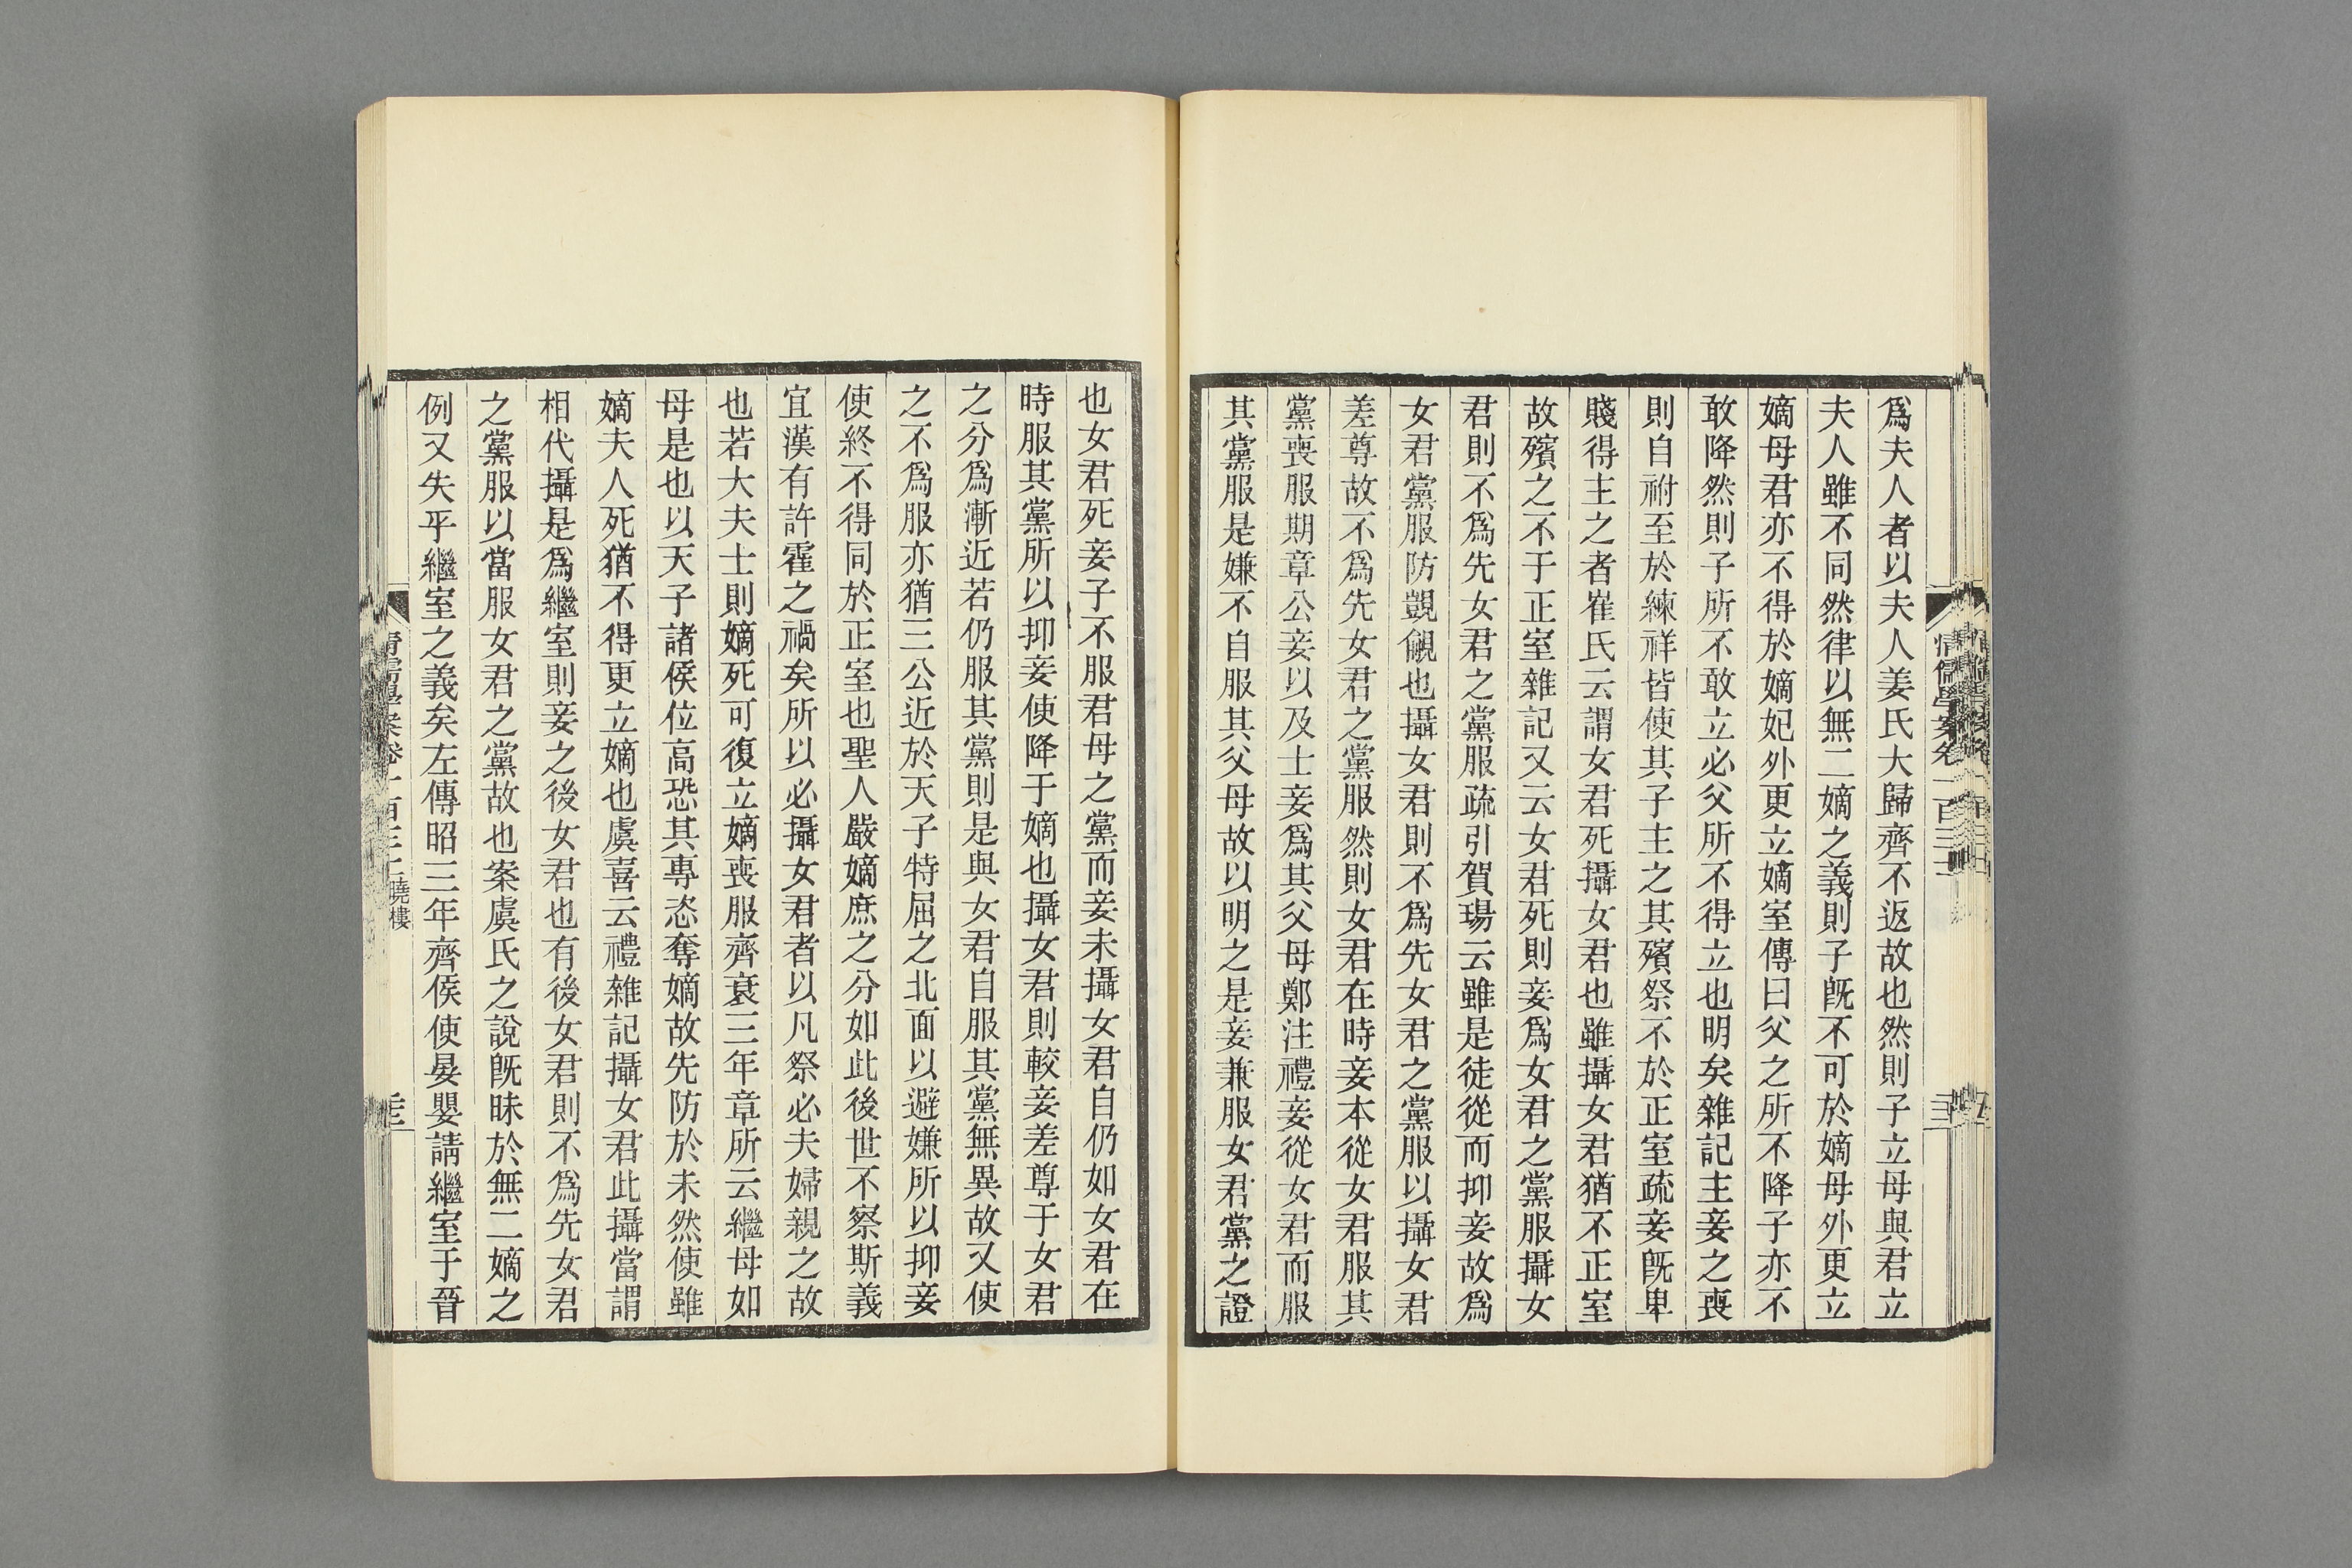 爲夫人者以夫人姜氏大歸齊不返故也然則子立母與君立
夫人雖不同然律以無二嫡之義則子旣不可於嫡母外更立
嫡母君亦不得於嫡妃外更立嫡室傳曰父之所不降子亦不
敢降然則子所不敢立必父所不得立也明矣雜記主妾之喪
則自祔至於練祥皆使其子主之其殯祭不於正室疏妾旣卑
賤得主之者崔氏云謂女君死攝女君也雖攝女君猶不正室
故殯之不于正室雜記又云女君死則妾爲女君之黨服攝女
君則不爲先女君之黨服疏引賀瑒云雖是徒從而抑妾故爲
女君黨服防覬覦也攝女君則不爲先女君之黨服以攝女君
差尊故不爲先女君之黨服然則女君在時妾本從女君服其
黨喪服期章公妾以及士妾爲其父母鄭注禮妾從女君而服
其黨服是嫌不自服其父母故以明之是妾兼服女君黨之證
也女君死妾子不服君母之黨而妾未攝女君自仍如女君在
時服其黨所以抑妾使降于嫡也攝女君則較妾差尊于女君
之分爲漸近若仍服其黨則是與女君自服其黨無異故又使
之不爲服亦猶三公近於天子特屈之北面以避嫌所以抑妾
使終不得同於正室也聖人嚴嫡庶之分如此後世不察斯義
宜漢有許霍之禍矣所以必攝女君者以凡祭必夫婦親之故
也若大夫士則嫡死可復立嫡喪服齊衰三年章所云繼母如
母是也以天子諸侯位高恐其專恣奪嫡故先防於未然使雖
嫡夫人死猶不得更立嫡也虞喜云禮雜記攝女君此攝當謂
相代攝是爲繼室則妾之後女君也有後女君則不爲先女君
之黨服以當服女君之黨故也案虞氏之說旣昧於無二嫡之
例又失乎繼室之義矣左傳昭三年齊侯使晏嬰請繼室于晉
清儒學案卷一百三十 曉樓